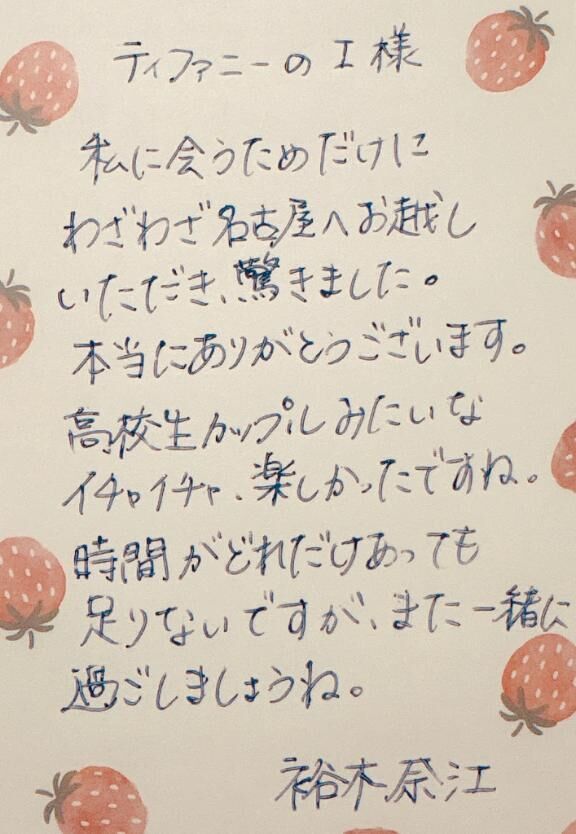 ティファニーのI様
私に会うためだけに
わざわざ名古屋へお越し
いただき、驚きました。
本当にありがとうございます。
高校生カップルみたいな
イチャイチャ、楽しかったですね。
時間がどれだけあっても
足りないですが、また一緒に
過ごしましょうね。
裕木奈江